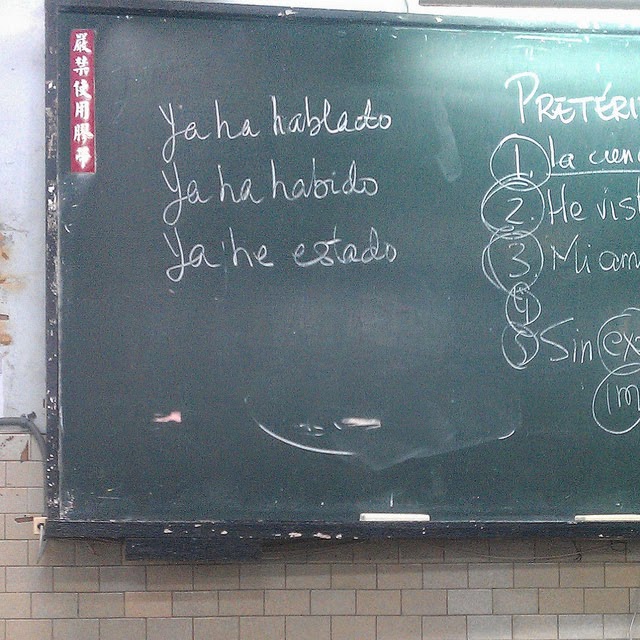 嚴禁使用膠帶
Ya ha hablado
Ya ha habido
Ya he estado
PRETÉRI
1. la cien
2. He vist
3. Mi am
4
5 Sin ex
im